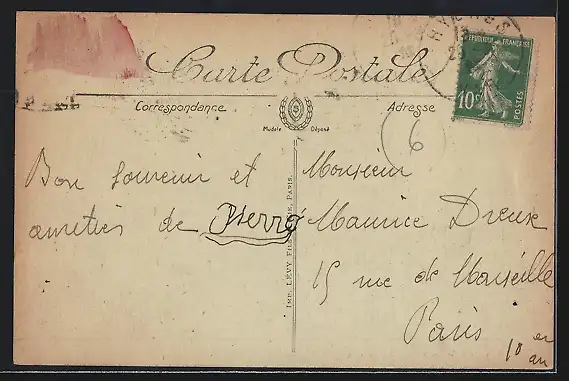 Carte Postale
Correspondance
Adresse
Modèle Déposé
RÉPUBLIQUE FRANÇAISE
10c
POSTES
6
Bon souvenir et
amitiés de Pierro
IMP. LÉVY FILS PARIS.
Monsieur
Maurice Dreux
15 rue de Marseille
Paris
10 er
au